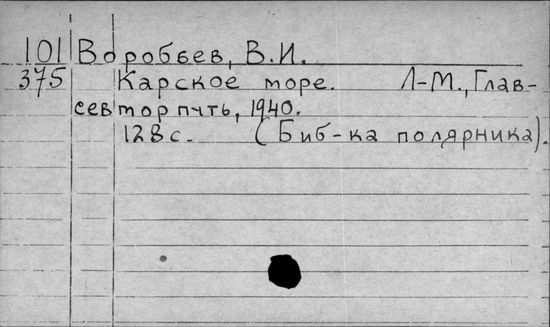 101 Воробьев, В.И.
375 Карское море. Л-М., Глав-
севморпуть, 1940.
128 с. (Биб-ка полярника).